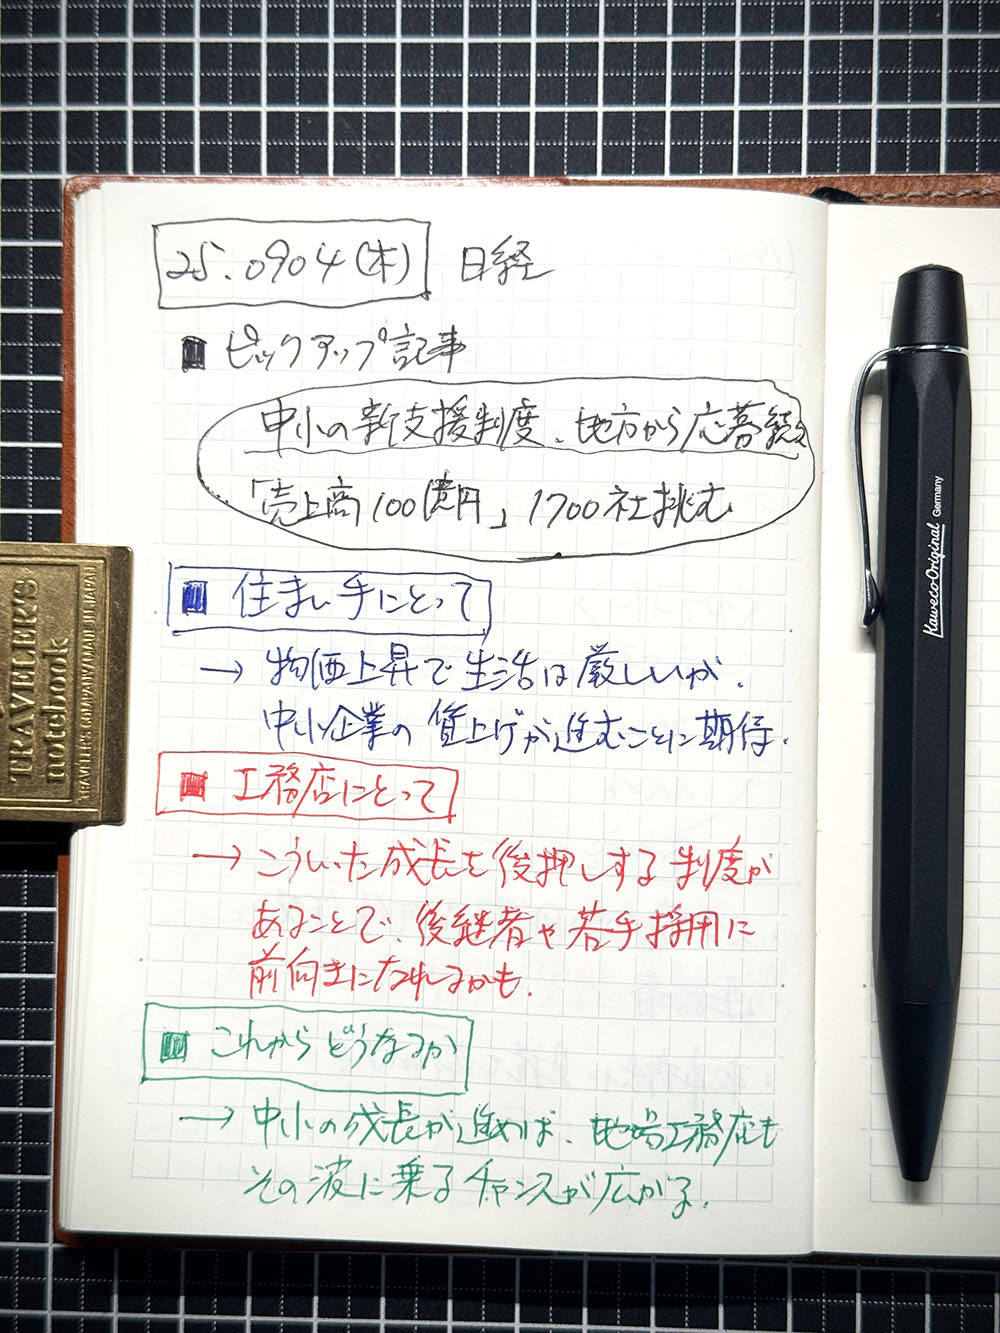 25.0904(木) 日経
■ ピックアップ記事
中小の新支援制度、地方から応募続々
「売上高100億円」1700社挑む
■ 住まい手にとって
→ 物価上昇で生活は厳しいが、
中小企業の賃上げが進むことに期待。
■ 工務店にとって
→ こういった成長を後押しする制度が
あることで、後継者や若手採用に
前向きになれるかも。
■ これからどうなるか
→ 中小の成長が進めば、地場工務店も
その波に乗るチャンスが広がる。
TRAVELER'S
notebook
TRAVELER'S COMPANY MADE IN JAPAN
Kaweco-Original Germany